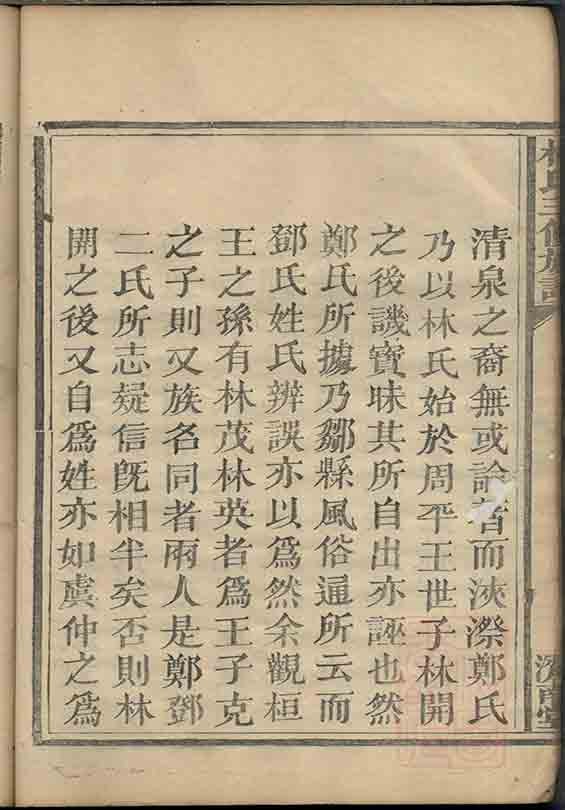 清泉之裔無或論者而浹漈鄭氏
乃以林氏始於周平王世子林開
之後譏寶昧其所自出亦誣也然
鄭氏所據乃鄒縣風俗通所云而
鄧氏姓氏辨誤亦以為然余觀桓
王之孫有林茂林英者爲王子克
之子則又族名同者兩人是鄭鄧
二氏所志疑信旣相半矣否則林
開之後又自爲姓亦如虞仲之爲
林氏三修族譜